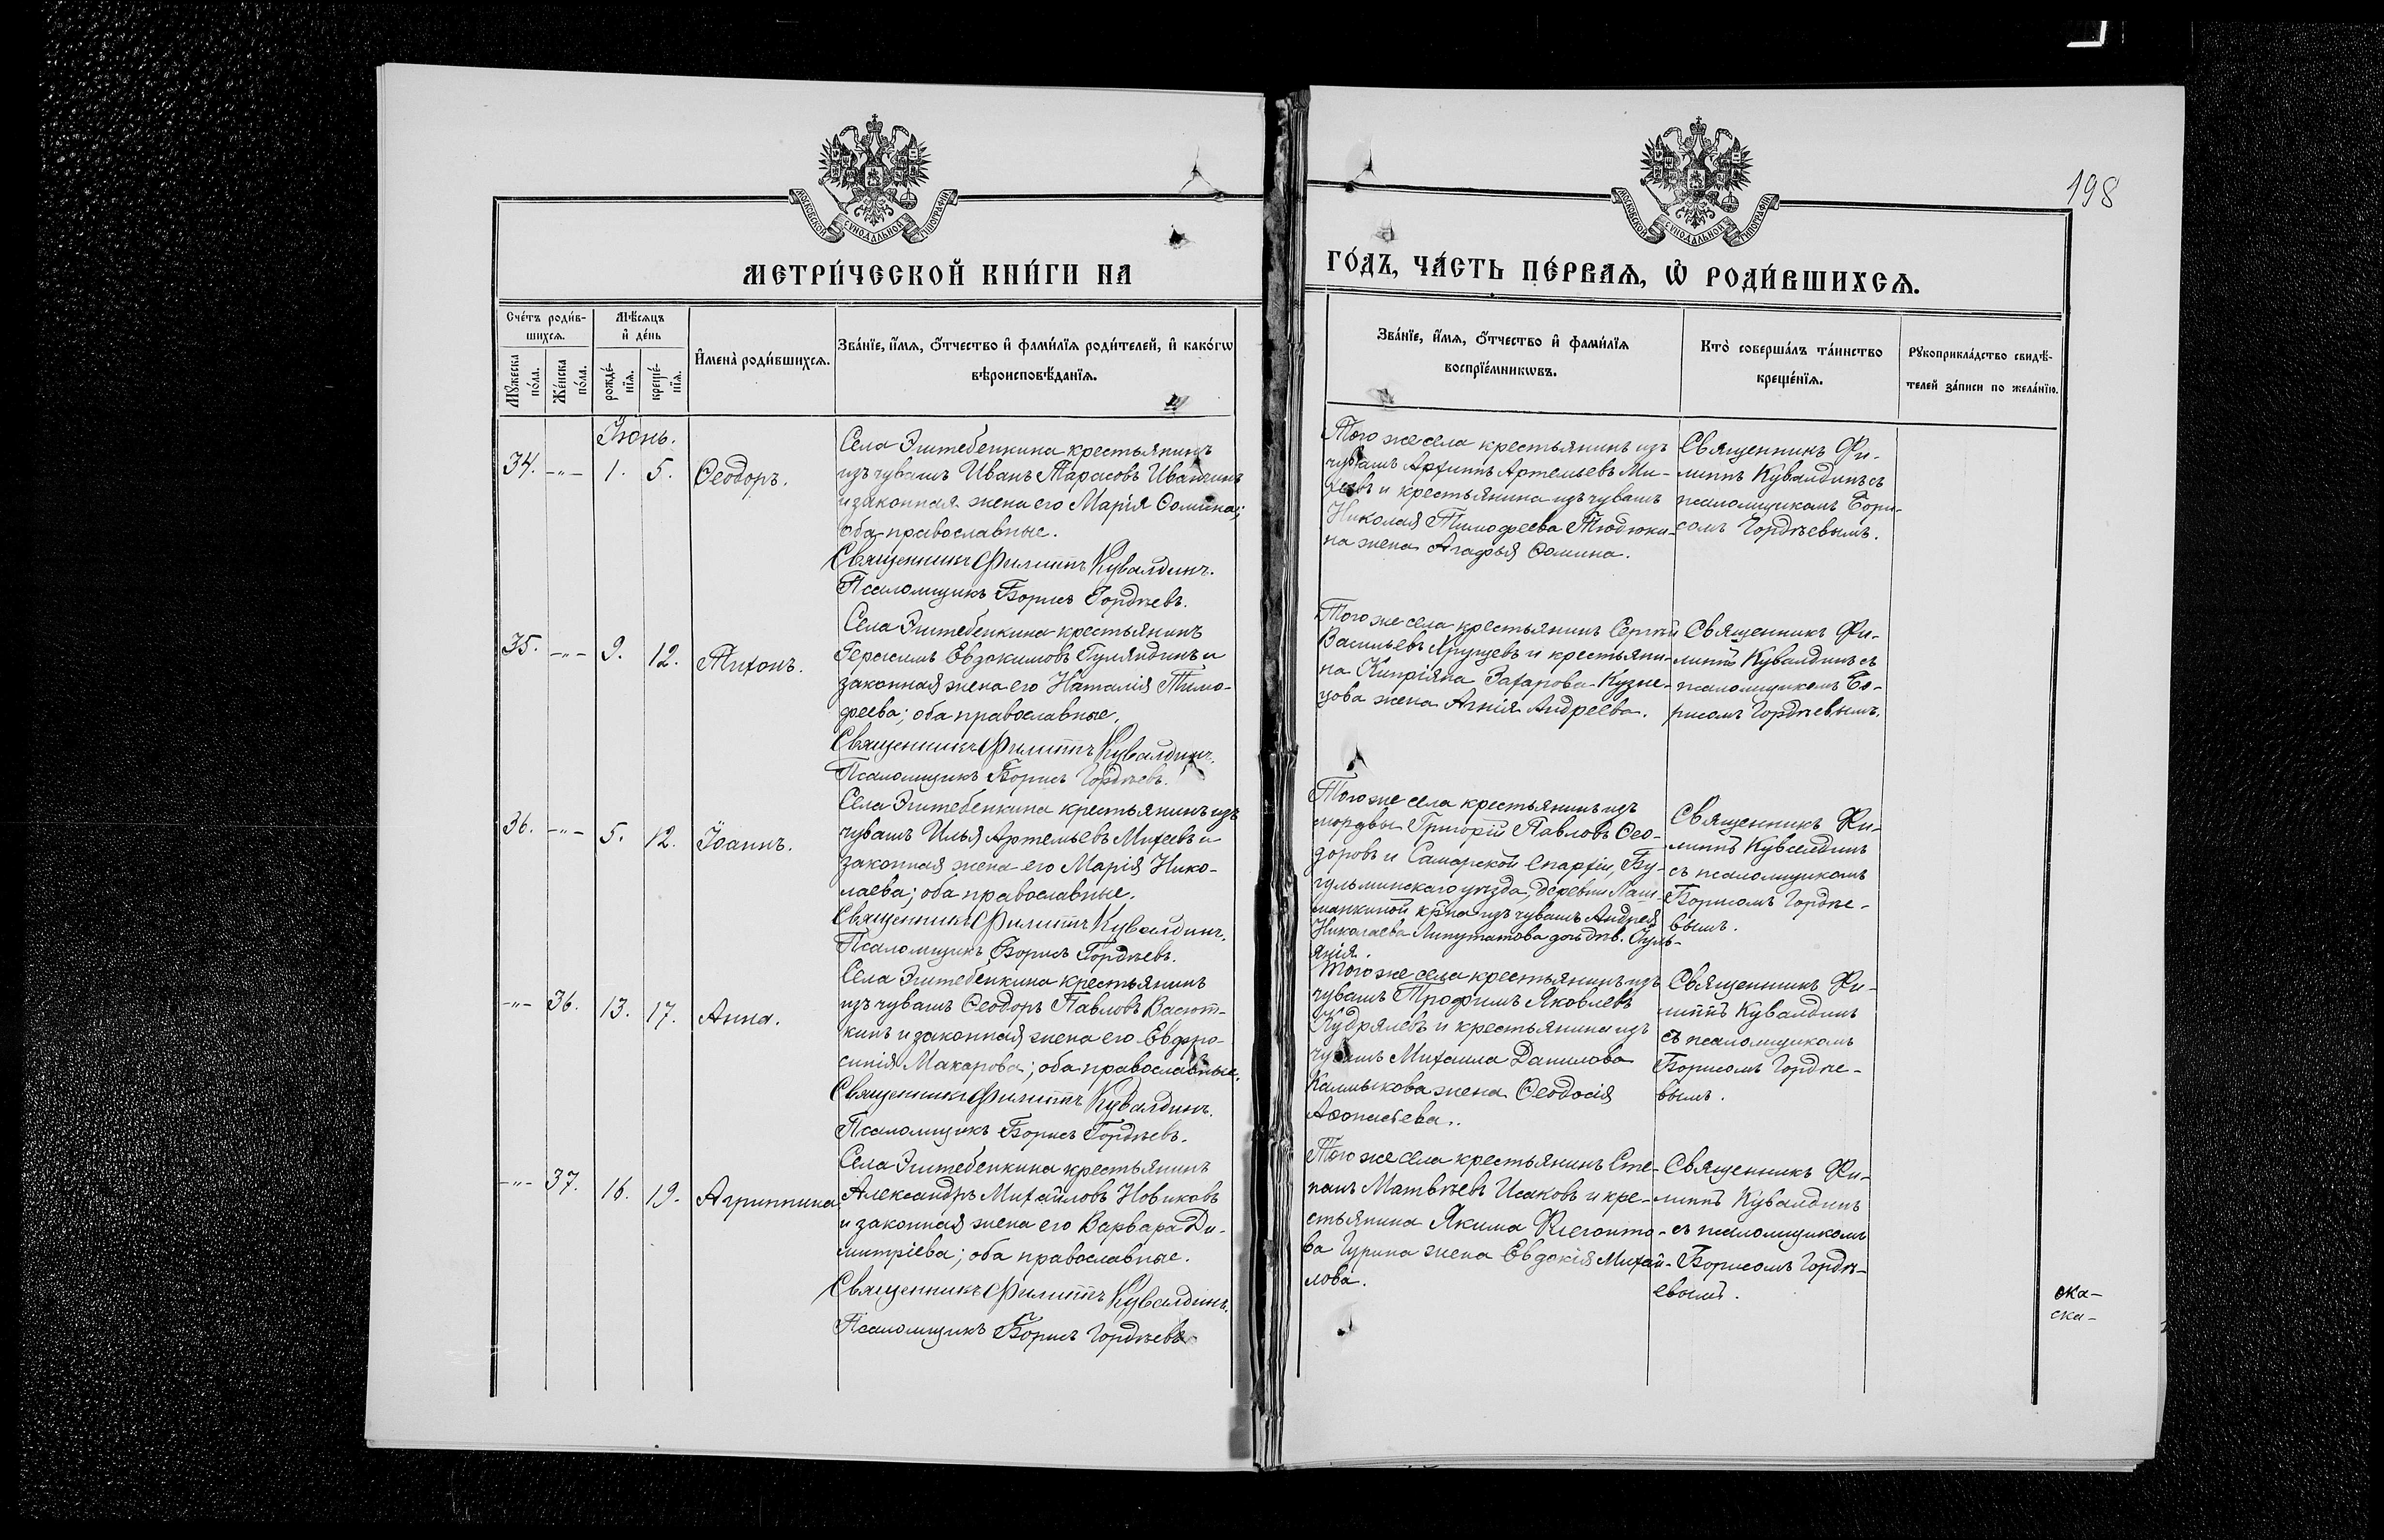 198
МОСКОВСКОЙ СѴНОДАЛЬНОЙ ТИПОГРАФІИ
МОСКОВСКОЙ СѴНОДАЛЬНОЙ ТИПОГРАФІИ
МЕТРИ́ЧЕСКОЙ КНИ́ГИ НА
ГО́ДЪ, ЧА́СТЬ ПЕ́РВАѦ, Ѡ҆ РОДИ́ВШИХСѦ.
Сче́тъ роди́в-
шихсѧ.
Мꙋ́жеска по́ла.
Же́нска по́ла.
Мѣ́сѧцъ
и҆ де́нь
рожде́-
нїѧ.
креще́-
нїѧ.
И҆мена̀ роди́вшихсѧ.
Зва́нїе, и҆́мѧ, ѻ҆́тчество и҆ фами́лїѧ роди́телей, и҆ како́гѡ
вѣроисповѣ́данїѧ.
Зва́нїе, и҆́мѧ, ѻ҆́тчество и҆ фами́лїѧ
воспрїе́мникѡвъ.
Кто̀ соверша́лъ та́инство
креще́нїѧ.
Рꙋкоприкла́дство свидѣ́-
телей за́писи по жела́нїю.
Іюнь.
34. -"- 1. 5. Ѳеодоръ.
Села Эштебенкина крестьянинъ
изъ чувашъ Иванъ Тарасовъ Иванчинъ
и законная жена его Марія Ѳомина;
оба православные.
Священникъ Филиппъ Кувалдинъ.
Псаломщикъ Борисъ Гордѣевъ.
Того же села крестьянинъ изъ
чувашъ Архипъ Артемьевъ Ми-
хеевъ и крестьянина изъ чувашъ
Николая Тимофеева Тюдюки-
на жена Агафья Ѳомина.
Священникъ Фи-
липпъ Кувалдинъ съ
псаломщикомъ Бори-
сомъ Гордѣевымъ.
35. -"- 9. 12. Тихонъ.
Села Эштебенкина крестьянинъ
Герасимъ Евдокимовъ Гуляндинъ и
законная жена его Наталія Тимо-
феева; оба православные.
Священникъ Филиппъ Кувалдинъ.
Псаломщикъ Борисъ Гордѣевъ.
Того же села крестьянинъ Сергѣй
Васильевъ Хрущевъ и крестьяни-
на Кипріяна Захарова Кузне-
цова жена Агнія Андреева.
Священникъ Фи-
липпъ Кувалдинъ съ
псаломщикомъ Бо-
рисомъ Гордѣевымъ.
36. -"- 5. 12. Іоаннъ.
Села Эштебенкина крестьянинъ изъ
чувашъ Илья Артемьевъ Михеевъ и
законная жена его Марія Нико-
лаева; оба православные.
Священникъ Филиппъ Кувалдинъ.
Псаломщикъ Борисъ Гордѣевъ.
Того же села крестьянинъ изъ
мордвы Григорій Павловъ Ѳео-
доровъ и Самарской епархіи, Бу-
гульминскаго уѣзда, деревни Лаш-
манкиной кр̃на изъ чувашъ Андрея
Николаева Липутатова дочь дѣв.
Священникъ Фи-
липпъ Кувалдинъ
съ псаломщикомъ
Борисомъ Гордѣе-
вымъ.
-"- 36. 13. 17. Анна.
Села Эштебенкина крестьянинъ
изъ чувашъ Ѳеодоръ Павловъ Васют-
кинъ и законная жена его Евфро-
синія Макарова; оба православные.
Священникъ Филиппъ Кувалдинъ.
Псаломщикъ Борисъ Гордѣевъ.
Того же села крестьянинъ изъ
чувашъ Трофимъ Яковлевъ
Кудрялевъ и крестьянина изъ
чувашъ Михаила Данилова
Калмыкова жена Ѳеодосія
Аѳонасьева.
Священникъ Фи-
липпъ Кувалдинъ
съ псаломщикомъ
Борисомъ Гордѣе-
вымъ.
-"- 37. 16. 19. Агриппина
Села Эштебенкина крестьянинъ
Александръ Михайловъ Новиковъ
и законная жена его Варвара Ди-
митріева; оба православные.
Священникъ Филиппъ Кувалдинъ.
Псаломщикъ Борисъ Гордѣевъ
Того же села крестьянинъ Сте-
панъ Матвѣевъ Исаковъ и кре-
стьянина Якима Клегонто-
ва Гурина жена Евдокія Михай-
лова.
Священникъ Фи-
липпъ Кувалдинъ
съ псаломщикомъ
Борисомъ Гордѣ-
евымъ.
ска-
ска-